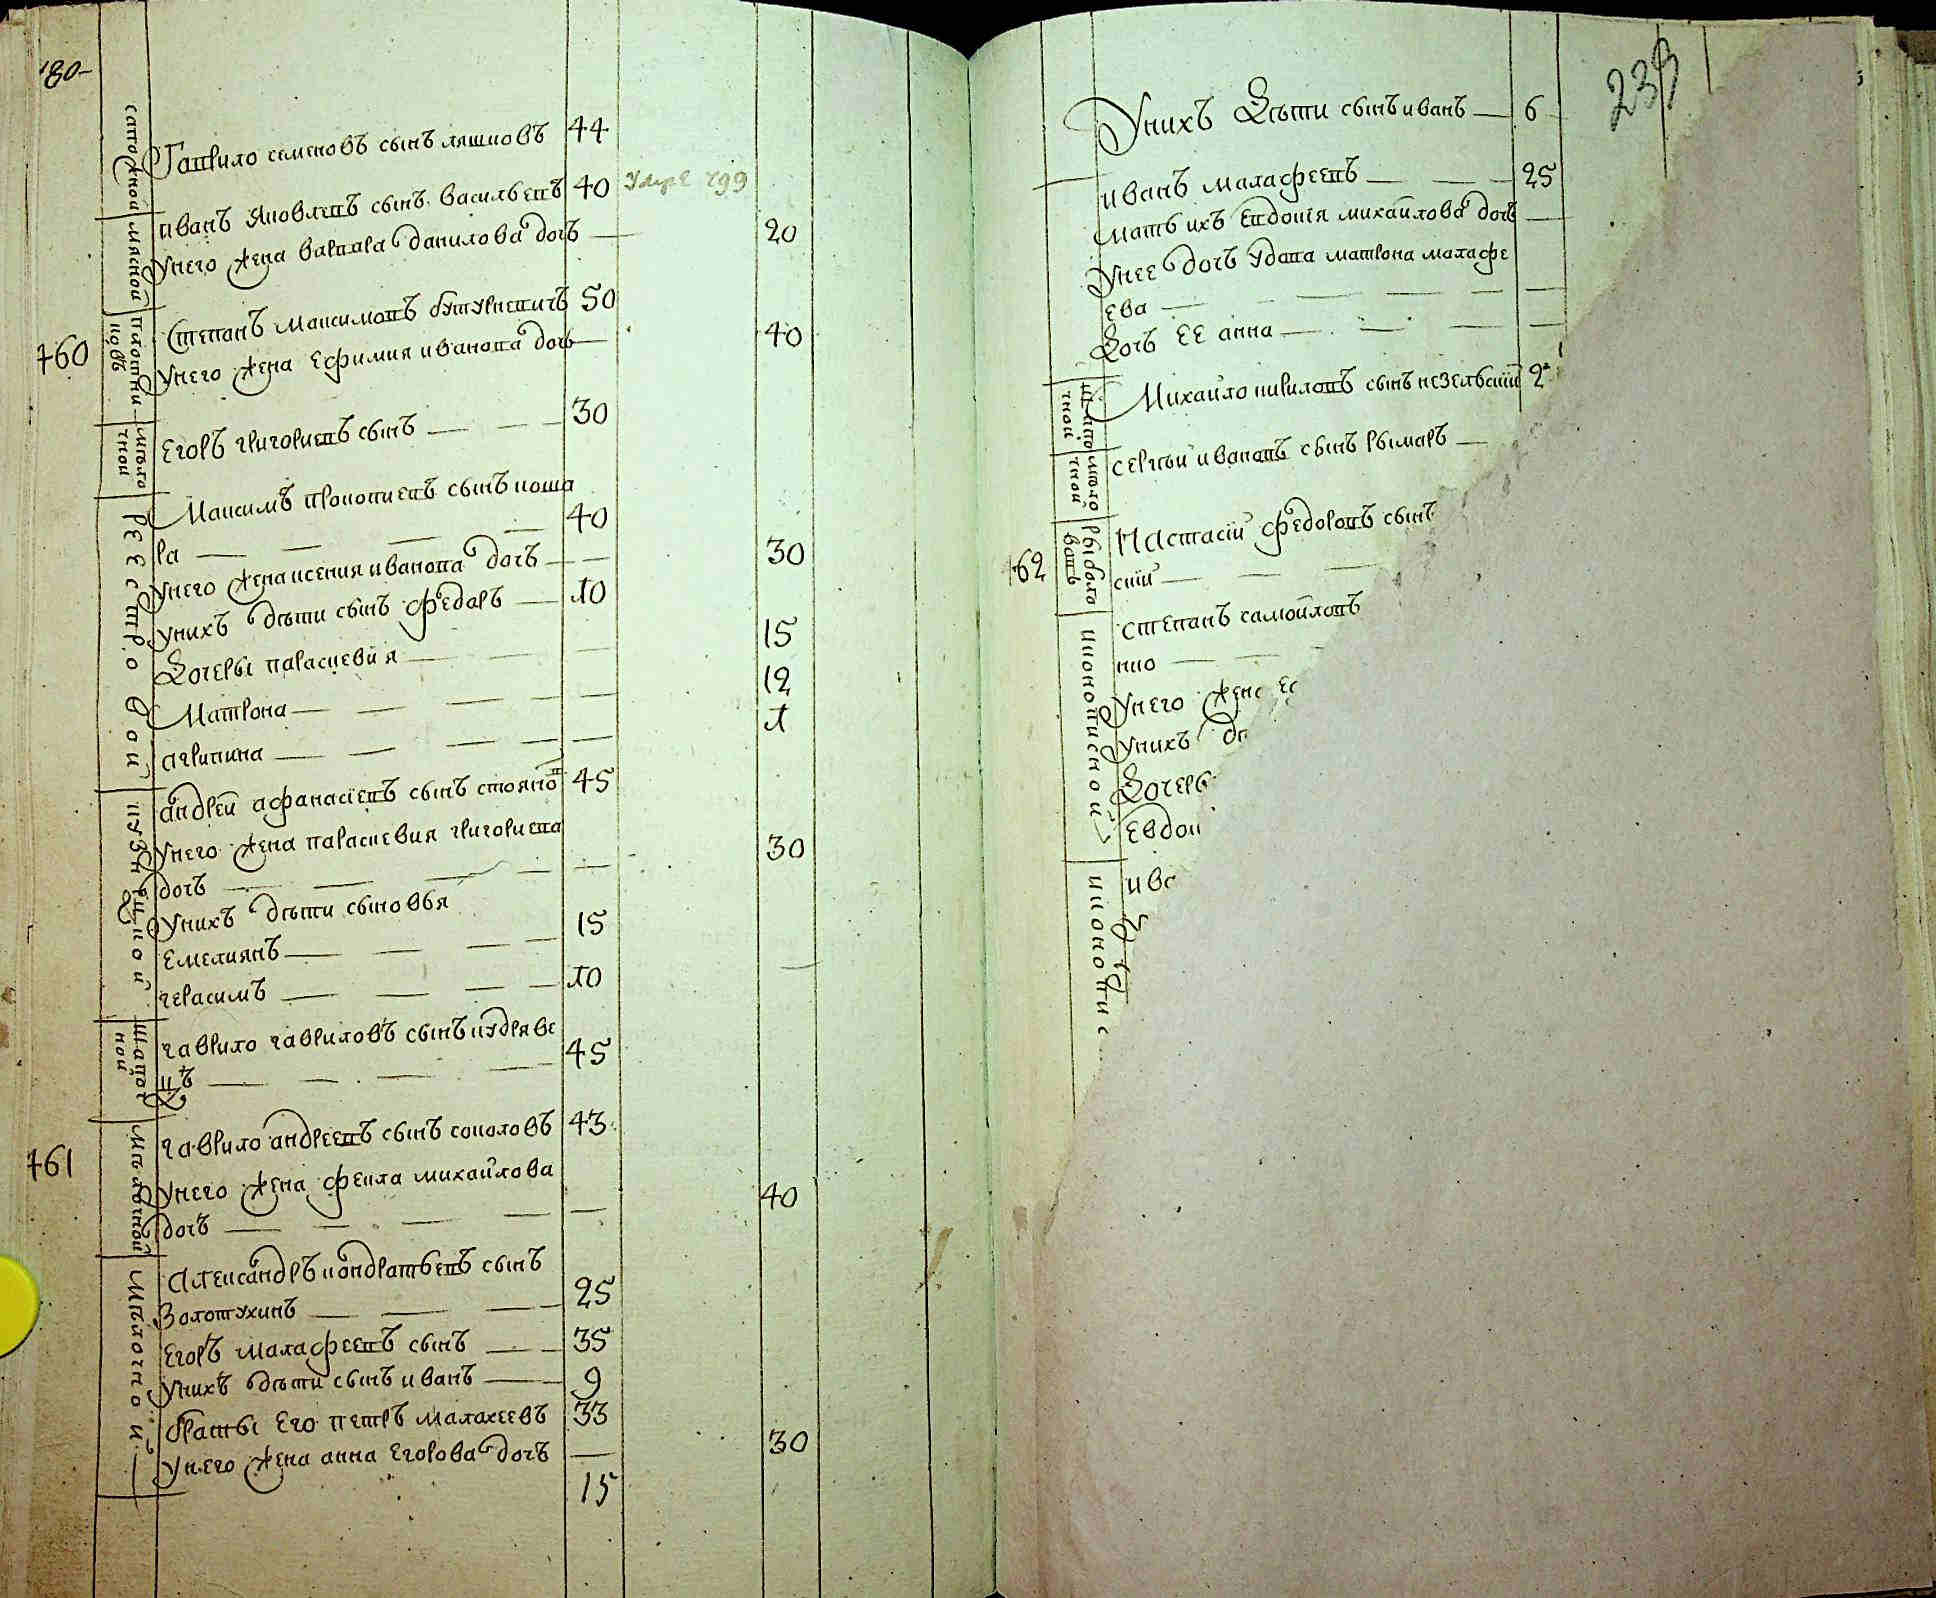 180
сапожной
Гаврило семеновъ сынъ ляшковъ 44
мясной
иванъ яковлевъ сынъ васильевъ 40 умре 799
унего жена варвара данилова дочь 20
760
плотниковъ
Степанъ максимовъ бутурневичъ 50
унего жена ефимия иванова дочь 40
мелочной
егоръ григориевъ сынъ 30
реестровой
Максимъ прокопиевъ сынъ коша
ра 40
унего жена ксения иванова дочь 30
унихъ дѣти сынъ федоръ 10
Дочеры параскевия 15
Матрона 12
агрипина 1
кузнецкой
андрей афанасіевъ сынъ стоянов 45
унего жена параскевия григориева 30
дочь
унихъ дѣти сыновья
емелиянъ 15
герасимъ 10
шапошной
гаврило гавриловъ сынъ кудряве
цъ 45
761
мелочной
гаврило андреевъ сынъ соколовъ 43
унего жена фекла михайлова
дочь 40
мелочной
Александръ кондратьевъ сынъ
Золотухинъ 25
егоръ малафеевъ сынъ 35
унихъ дѣти сынъ иванъ 9
братьы его петръ малахеевъ 33
унего жена анна егорова дочь 30
15
239
Унихъ Дѣти сынъ иванъ 6
иванъ малафеевъ 25
мать ихъ евдокія михайлова дочь
унее дочь удова матрона малафе
ева
Дочь ее анна
Михайло кириловъ сынъ незельский 2
мелочной
сергѣй ивановъ сынъ рымаръ
62
рыболовать
Настасій федоровъ сынъ
скій
иконописной
степанъ самойловъ
нко
унего жена ес
унихъ
Дочеры
евдок
иконопис
ива